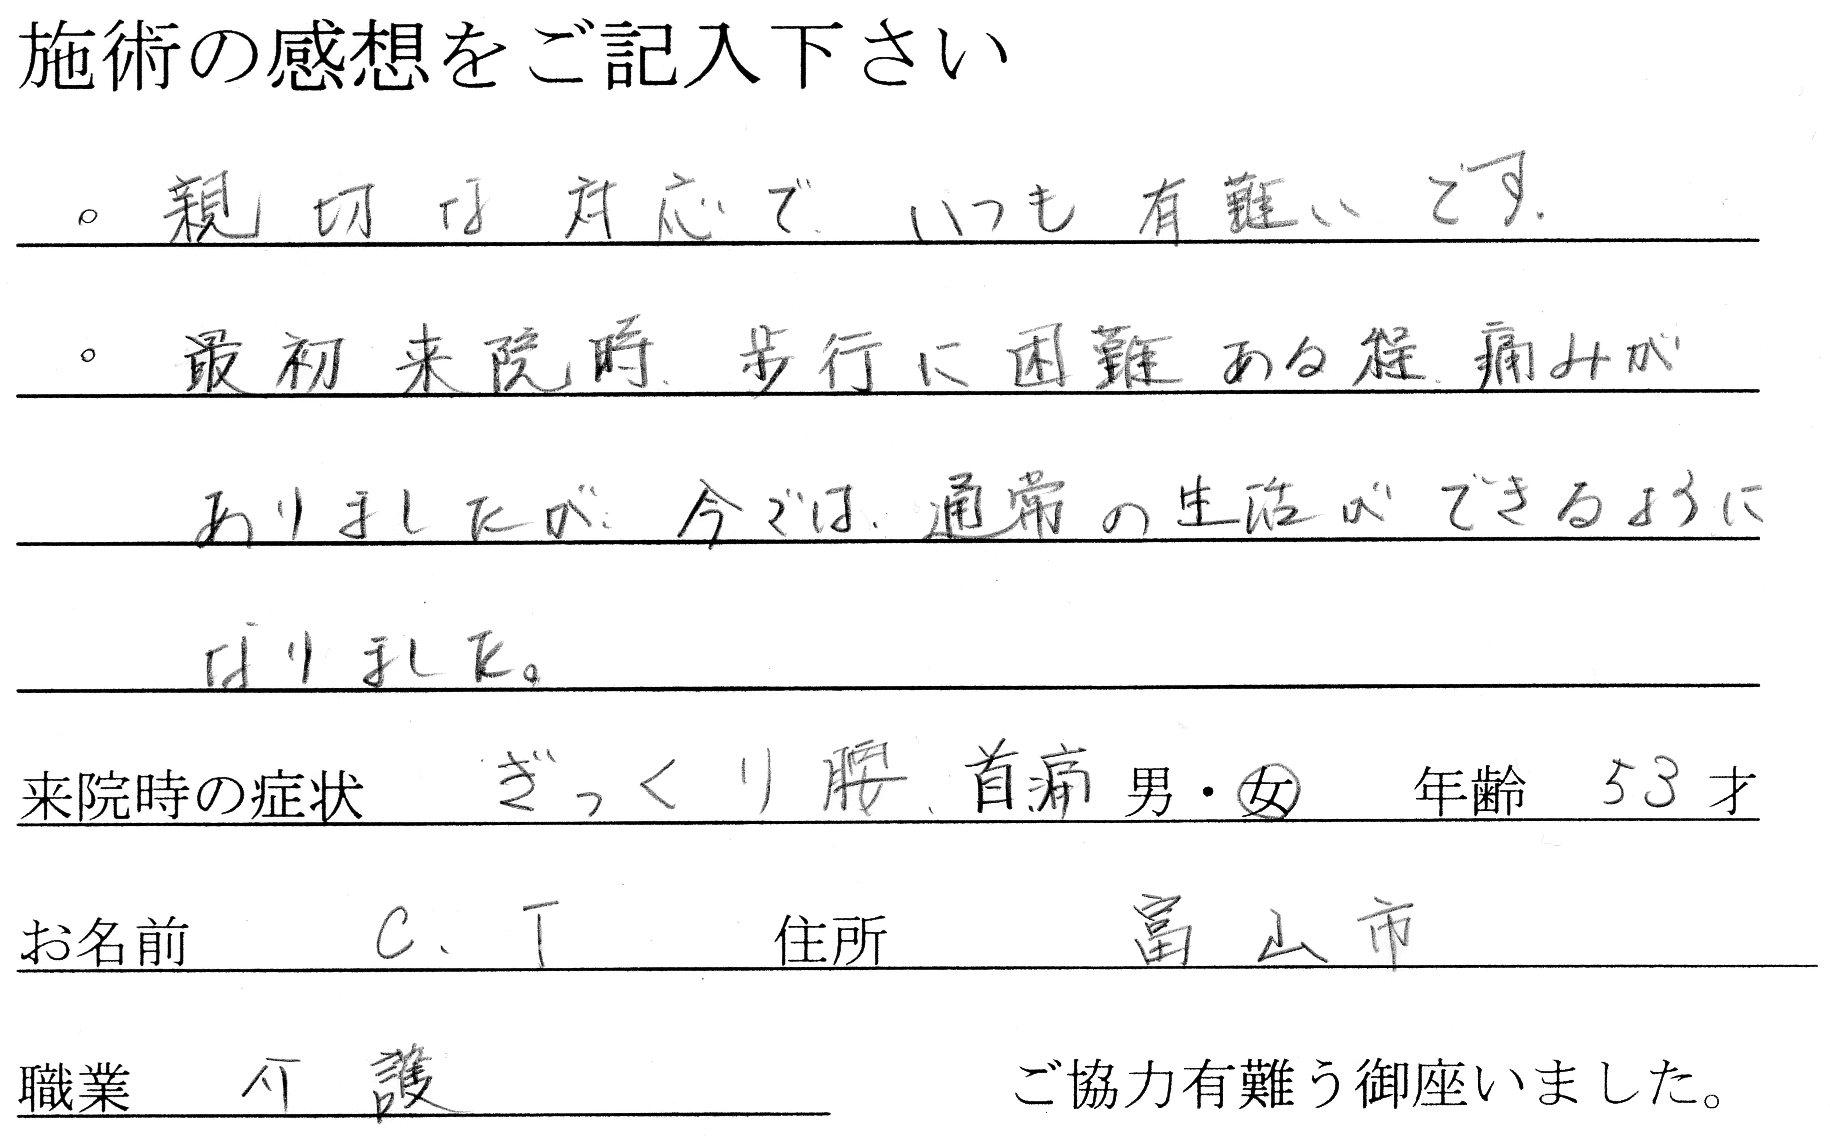 施術の感想をご記入下さい
。親切な対応で、いつも有難いです.
。最初来院時、歩行に困難ある程、痛みが
ありましたが、今では、通常の生活ができるように
なりました。
来院時の症状 ぎっくり腰、首痛 男・女 年齢 53才
お名前 C.T 住所 富山市
職業 介護 ご協力有難う御座いました。